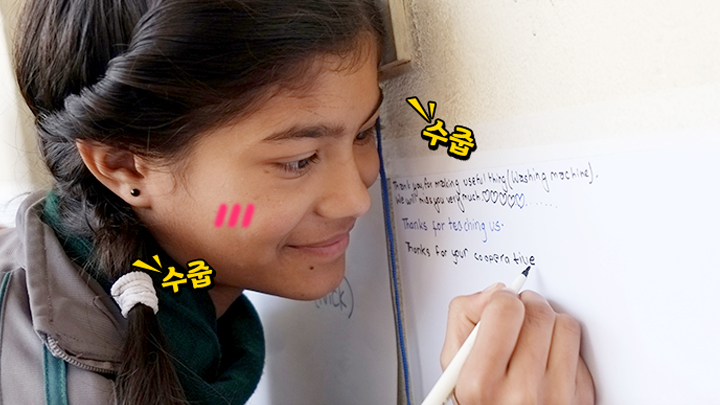 수줍
Thank you, for making useful thing (Washing machine).
We will miss you very much ♡♡♡♡♡......
Thanks for teaching us.
Thanks for your cooperative
수줍